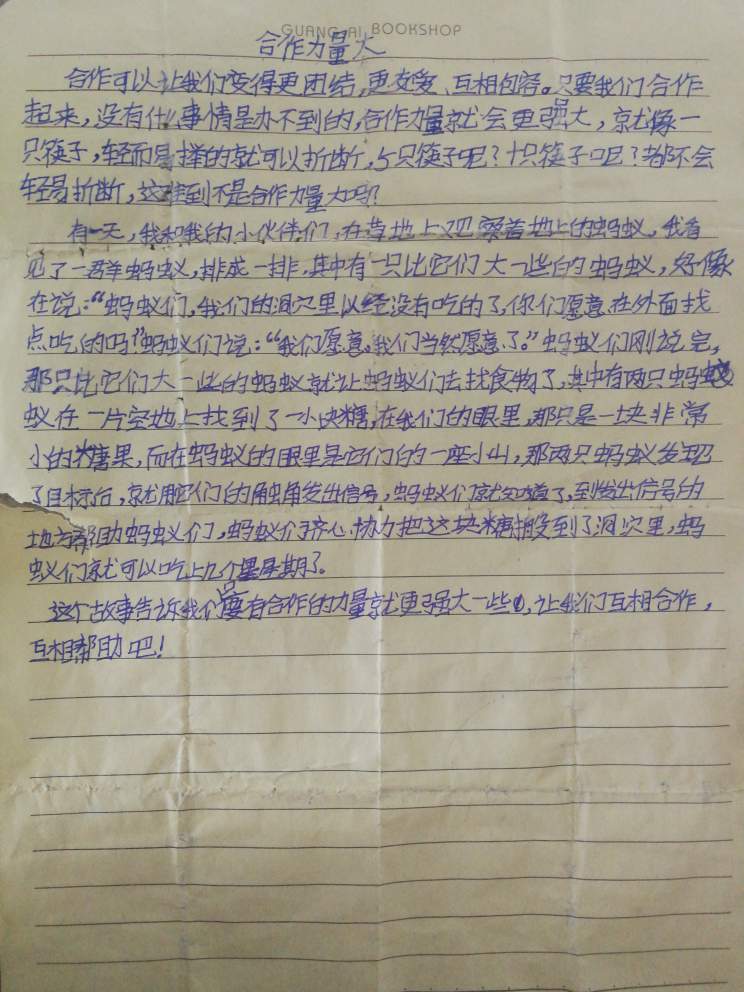 GUANG AI BOOKSHOP
合作力量大
合作可以让我们变得更团结,更友爱、互相包容。只要我们合作
起来,没有什么事情是办不到的,合作力量就会更强大,就像一
只筷子,轻而易择的就可以折断,5只筷子呢?十只筷子呢?都不会
轻易折断,这难到不是合作力量大吗?
有一天,我和我的小伙伴们,在草地上观察着地上的蚂蚁,我看
见了一群蚂蚁,排成一排,其中有一只比它们大一些的蚂蚁,好像
在说:“蚂蚁们,我们的洞穴里以经没有吃的了,你们愿意在外面找
点吃的吗?”蚂蚁们说:“我们愿意,我们当然愿意了。”蚂蚁们刚说完,
那只比它们大一些的蚂蚁就让蚂蚁们去找食物了,其中有两只蚂
蚁在一片空地上找到了一小块糖,在我们的眼里,那只是一块非常
小的糖果,而在蚂蚁的眼里是它们的一座小山,那两只蚂蚁发现
了目标后,就用它们的触角发出信号,蚂蚁们就知道了,到发出信号的
地方帮助蚂蚁们,蚂蚁们齐心协力把这块糖搬到了洞穴里,蚂
蚁们就可以吃上几个星期了。
这个故事告诉我们只要有合作的力量就更强大一些,让我们互相合作,
互相帮助吧!